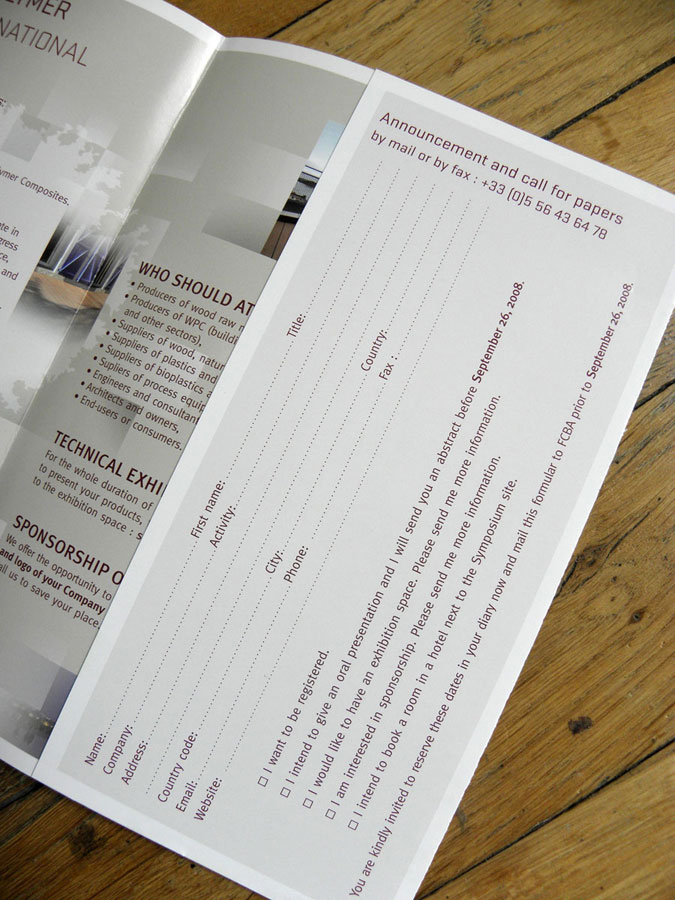 NATIONAL
Polymer Composites.
and
WHO SHOULD
• Producers of wood raw
• Producers of WPC
and other sectors),
• Suppliers of wood,
• Suppliers of plastics and
• Suppliers of bioplastics
• Supliers of process
• Engineers and
• Architects and owners,
• End-users or consumers.
TECHNICAL
For the whole duration of
to present your products,
to the exhibition space :
SPONSORSHIP
We offer the opportunity to
and logo of your Company
to save your place
Announcement and call for papers
by mail or by fax : +33 (0)5 56 43 64 78
Name: First name: Title:
Company: Activity:
Address:
Country code: City: Country:
Email: Phone: Fax :
Website:
☐ I want to be registered.
☐ I intend to give an oral presentation and I will send you an abstract before September 26, 2008.
☐ I would like to have an exhibition space. Please send me more information.
☐ I am interested in sponsorship. Please send me more information.
☐ I intend to book a room in a hotel next to the Symposium site.
You are kindly invited to reserve these dates in your diary now and mail this formular to FCBA prior to September 26, 2008.